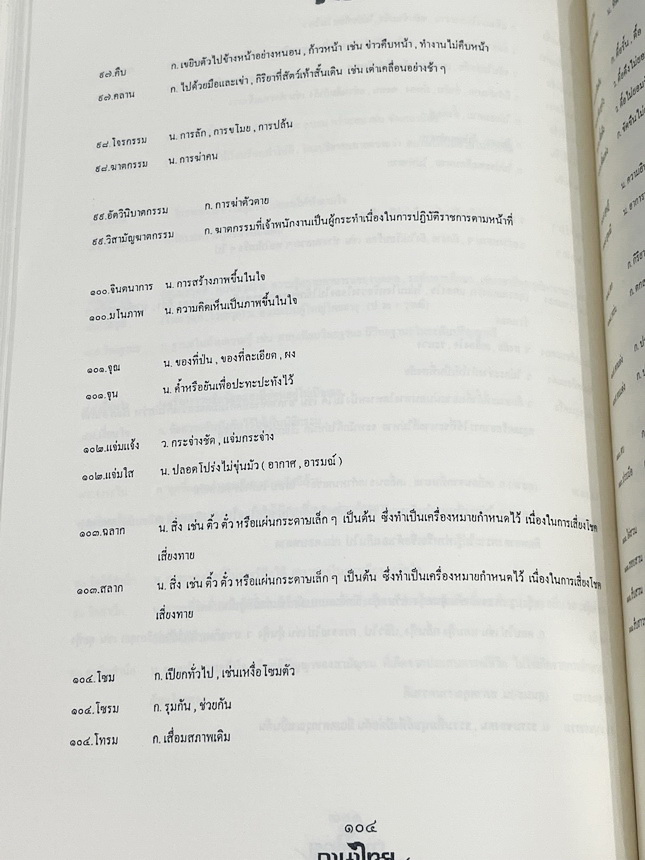 ๙๗.คืบ ก. เขยิบตัวไปข้างหน้าอย่างหนอน , ก้าวหน้า เช่น ข่าวคืบหน้า , ทำงานไม่คืบหน้า
๙๗.คลาน ก. ไปด้วยมือและเข่า , กิริยาที่สัตว์เท้าสั้นเดิน เช่น เต่าเคลื่อนอย่างช้า ๆ
๙๘.โจรกรรม น. การลัก , การขโมย , การปล้น
๙๘.ฆาตกรรม น. การฆ่าคน
๙๙.อัตวินิบาตกรรม ก. การฆ่าตัวตาย
๙๙.วิสามัญฆาตกรรม ก. ฆาตกรรมที่เจ้าพนักงานเป็นผู้กระทำเนื่องในการปฏิบัติราชการตามหน้าที่
๑๐๐.จินตนาการ น. การสร้างภาพขึ้นในใจ
๑๐๐.มโนภาพ น. ความคิดเห็นเป็นภาพขึ้นในใจ
๑๐๑.จุณ น. ของที่ป่น , ของที่ละเอียด , ผง
๑๐๑.จุน น. ค้ำหรือยันเพื่อปะทะปะทังไว้
๑๐๒.แจ่มแจ้ง ว. กระจ่างชัด , แจ่มกระจ่าง
๑๐๒.แจ่มใส น. ปลอดโปร่งไม่ขุ่นมัว ( อากาศ , อารมณ์ )
๑๐๓.ฉลาก น. สิ่ง เช่น ติ้ว ตั๋ว หรือแผ่นกระดาษเล็ก ๆ เป็นต้น ซึ่งทำเป็นเครื่องหมายกำหนดไว้ เนื่องในการเสี่ยงโชค
เสี่ยงทาย
๑๐๓.สลาก น. สิ่ง เช่น ติ้ว ตั๋ว หรือแผ่นกระดาษเล็ก ๆ เป็นต้น ซึ่งทำเป็นเครื่องหมายกำหนดไว้ เนื่องในการเสี่ยงโชค
เสี่ยงทาย
๑๐๔.โซม ก. เปียกทั่วไป , เช่นเหงื่อโซมตัว
๑๐๔.โซรม ก. รุมกัน , ช่วยกัน
๑๐๔.โทรม ก. เสื่อมสภาพเดิม
๑๐๔
ภาษาไทย